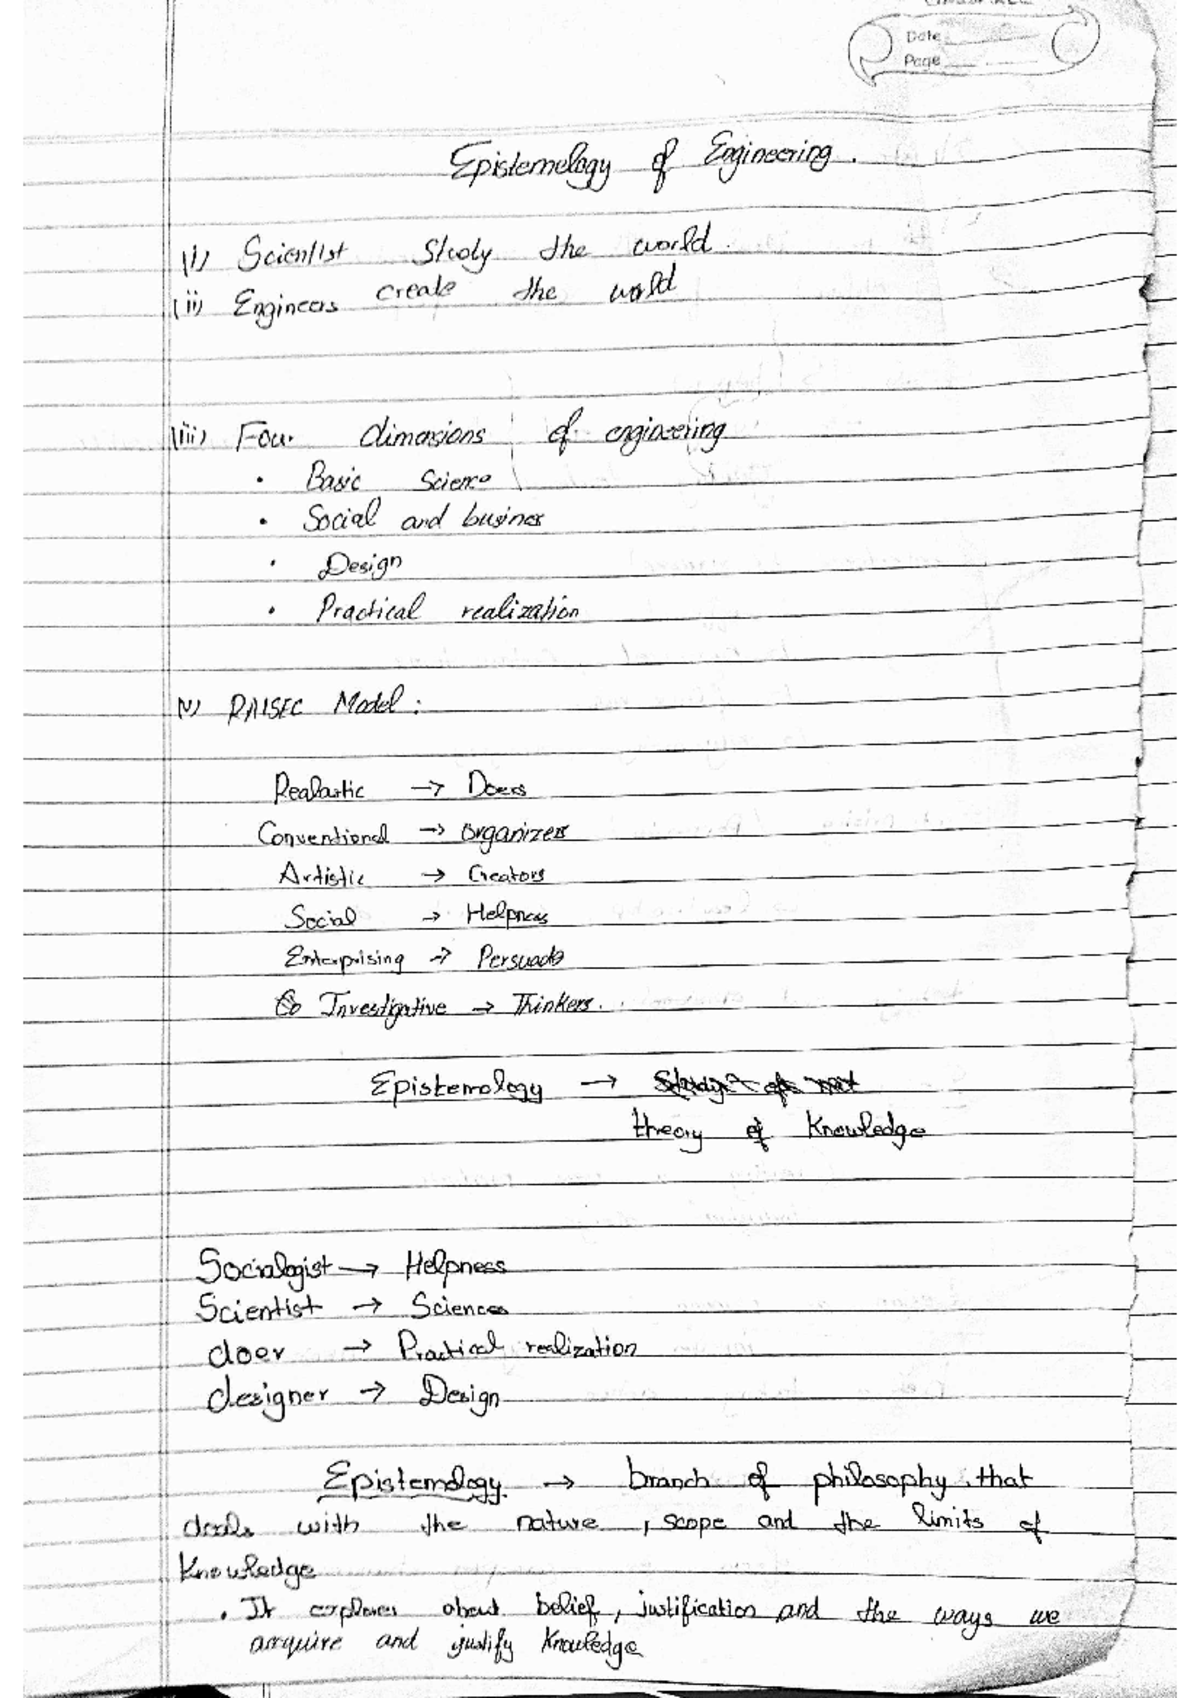 Date
Page
Epistemology of Engineering.
(i) Scientist Study the world.
(ii) Engineers create the world
(iii) Four dimensions of engineering
• Basic Science
• Social and business
• Design
• Practical realization
RAISEC Model:
Realastic → Doers
Conventional → Organizers
Artistic → Creators
Social → Helpness
Enterprising → Persuade
Investigative → Thinkers.
Epistemology →
theory of Knowledge
Socialogist → Helpness
Scientist → Sciences
doer → Practical realization
designer → Design
Epistemology → branch of philosophy that
deals with the nature, scope and the limits of
Knowledge
• It explores about belief, justification and the ways we
acquire and justify Knowledge